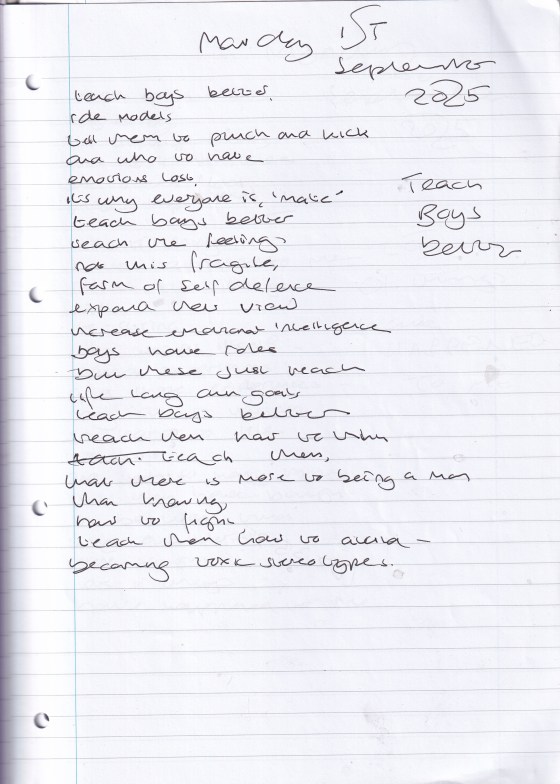 Monday 1ST
September
2025
teach boys better,
role models
tell them to punch and kick
and who to have
emotions lost,
its why everyone is, 'male'
teach boys better
teach the feelings
not this fragile,
form of self defence
expand their view
increase emotional intelligence
boys have roles
but these just reach
life long own goals
teach boys better
teach them how to
teach them,
that there is more to being a man
than knowing,
how to fight,
teach them how to avoid -
becoming toxic stereotypes.
Teach
Boys
better